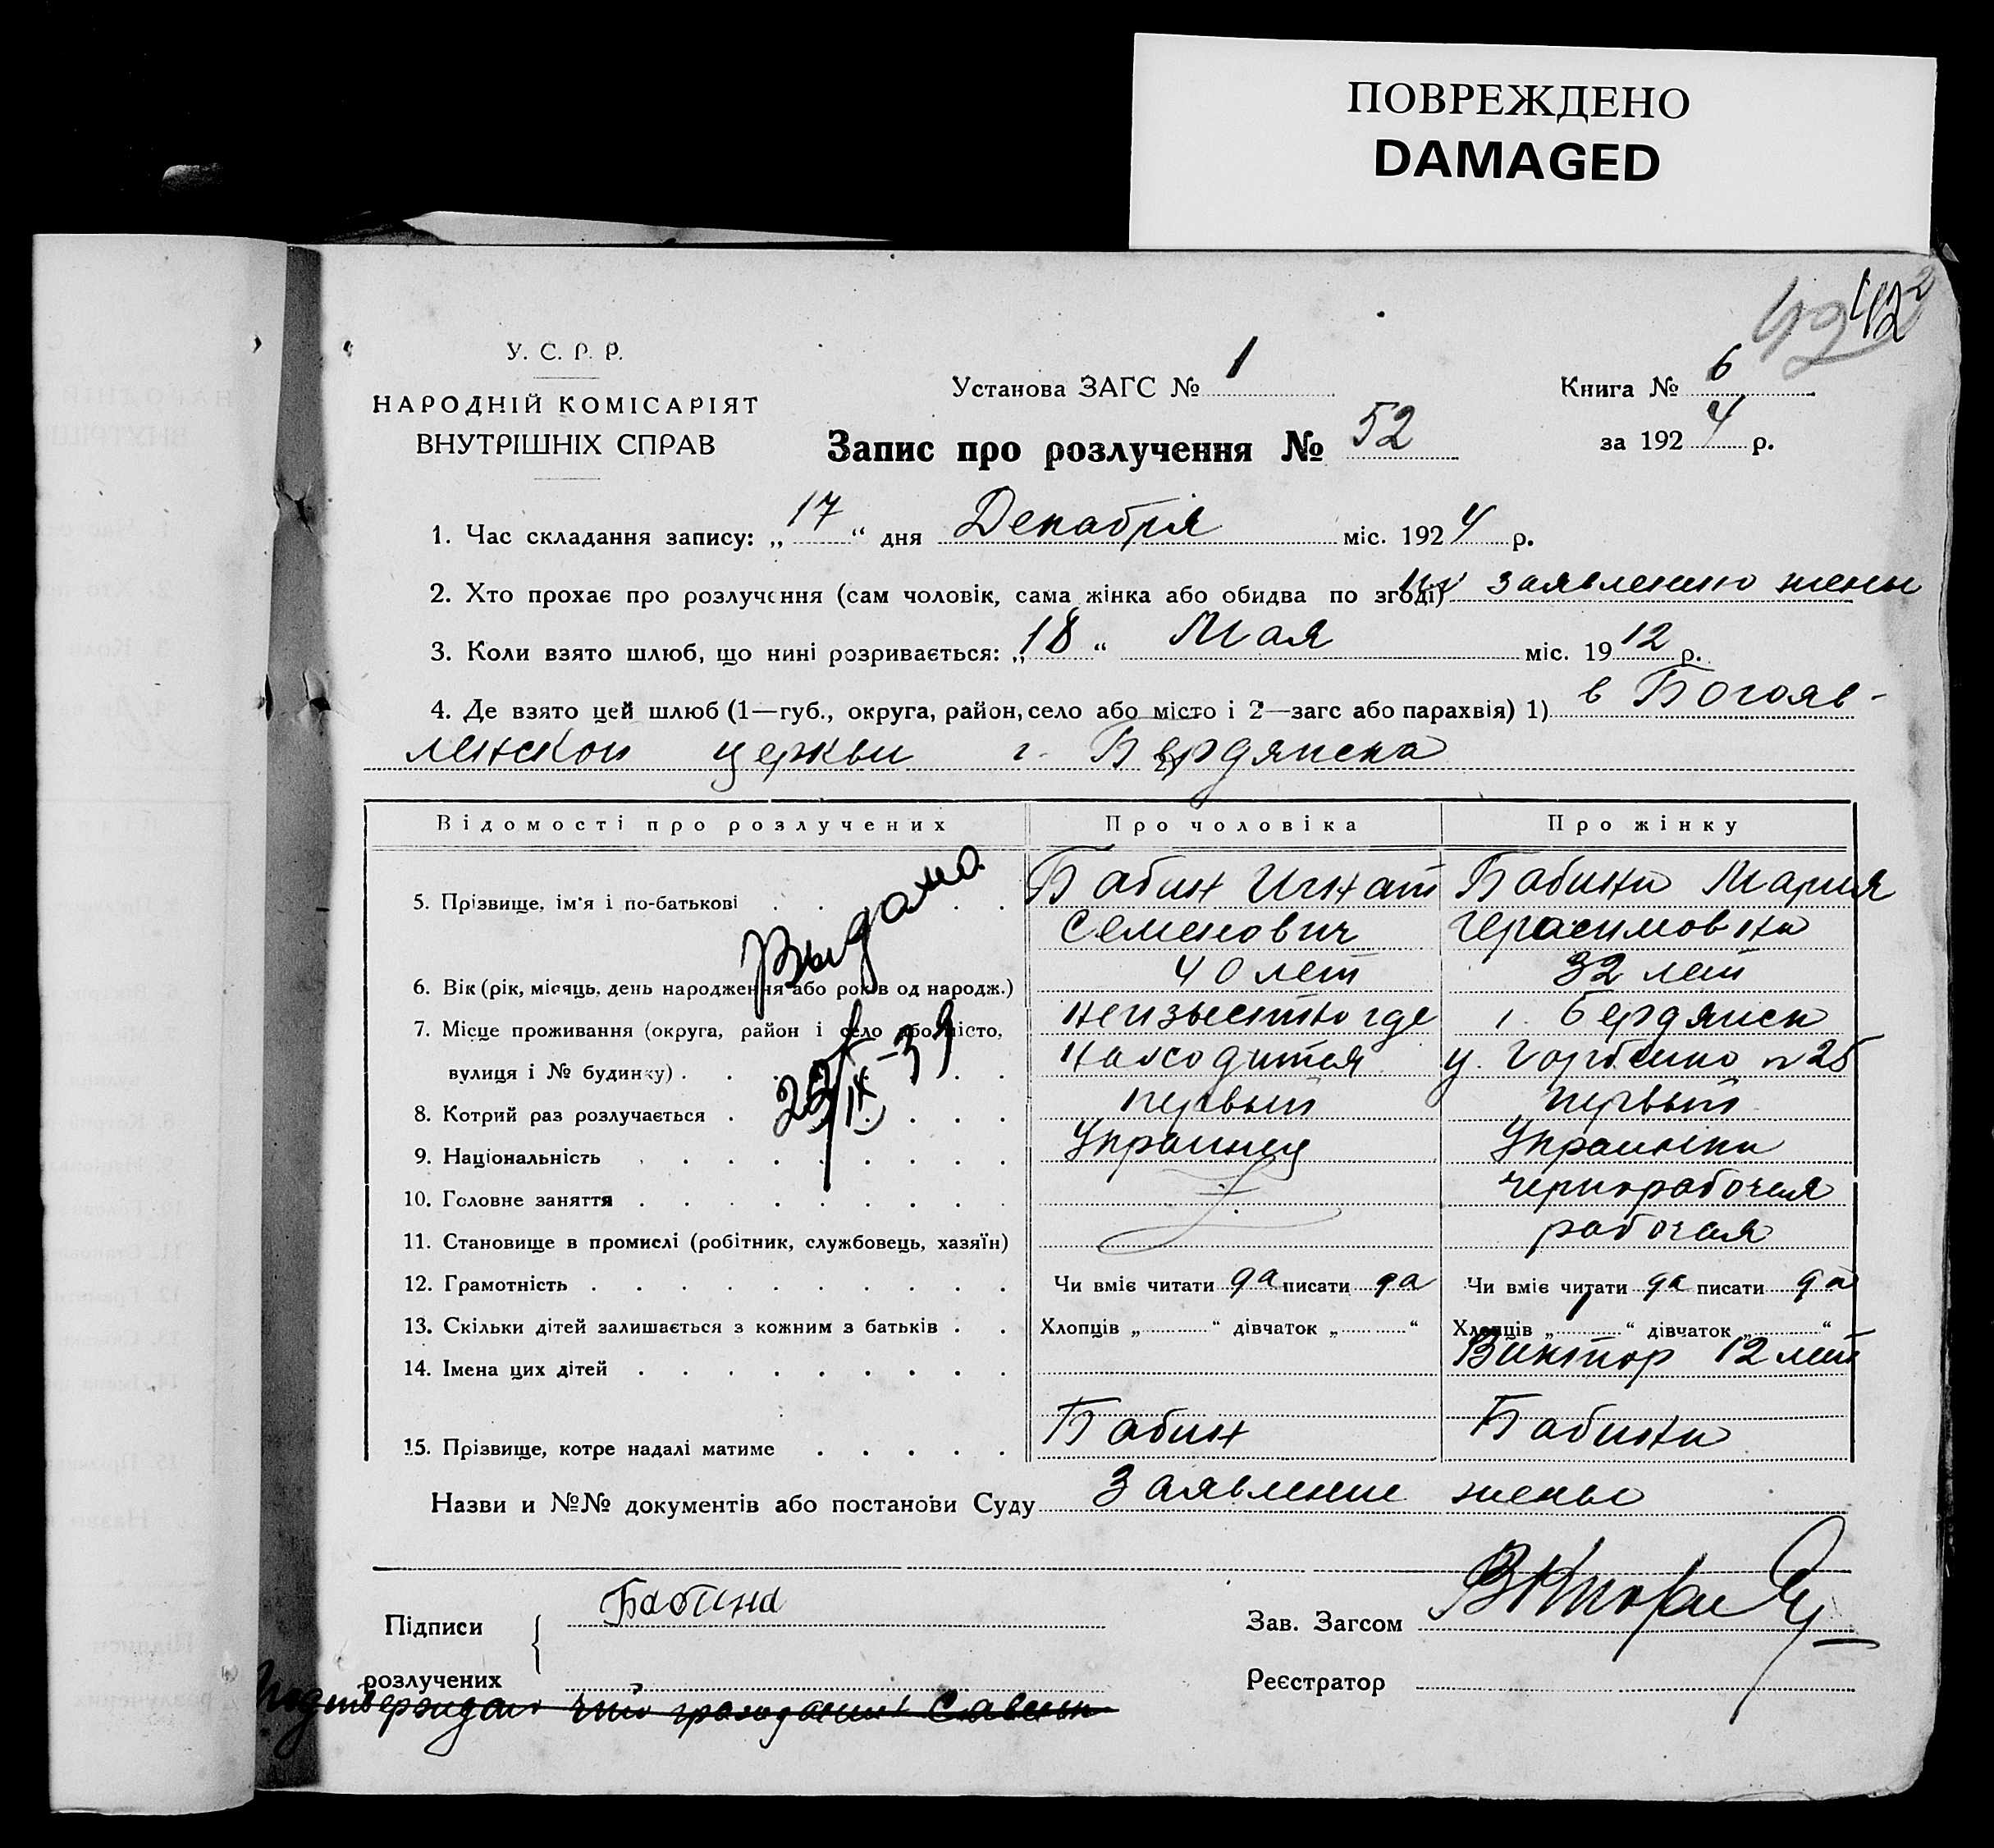 ПОВРЕЖДЕНО
DAMAGED
42
У. С. Р. Р.
НАРОДНІЙ КОМІСАРІЯТ
ВНУТРІШНІХ СПРАВ
Установа ЗАГС № 1
Книга № 6
Запис про розлучення № 52
за 1924 р.
1. Час складання запису: „17“ дня Декабря міс. 1924 р.
2. Хто прохає про розлучення (сам чоловік, сама жінка або обидва по згоді) заявлению жены
3. Коли взято шлюб, що нині розривається: „18“ Мая міс. 1912 р.
4. Де взято цей шлюб (1—губ., округа, район, село або місто і 2—загс або парахвія) 1) в Богояв-
ленской церкви г. Бердянска
Відомості про розлучених Про чоловіка Про жінку
5. Прізвище, ім'я і по-батькові Бабин Игнат Бабина Мария
Семенович Герасимовна
6. Вік (рік, місяць, день народження або років од народж.) 40 лет 32 лет
7. Місце проживання (округа, район і село або місто, неизвестно где г. Бердянск
вулиця і № будинку) находится у. Горбенко №25
8. Котрий раз розлучається первый первый
9. Національність Украинец Украинка
10. Головне заняття чернорабочая
11. Становище в промислі (робітник, службовець, хазяїн) рабочая
12. Грамотність Чи вміє читати да писати да Чи вміє читати да писати да
13. Скільки дітей залишається з кожним з батьків Хлопців „ “ дівчаток „ “ Хлопців „1“ дівчаток „ “
14. Імена цих дітей Виктор 12 лет
15. Прізвище, котре надалі матиме Бабин Бабина
Выдано
Назви и №№ документів або постанови Суду Заявление жены
Підписи Бабина
розлучених
Зав. Загсом
Реєстратор
Подтверждаю что гражданин